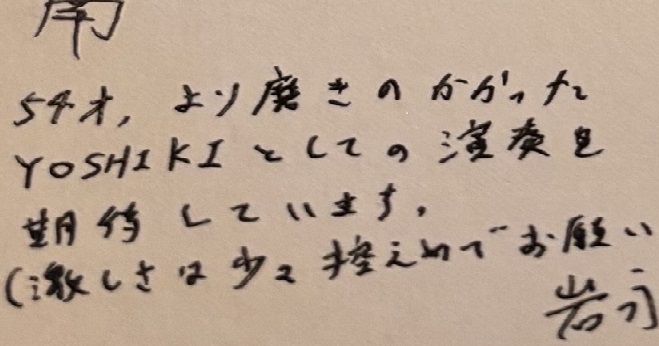 54才，より磨きのかかった
YOSHIKIとしての演奏を
期待しています．
(激しさは少々控えめでお願い
岩